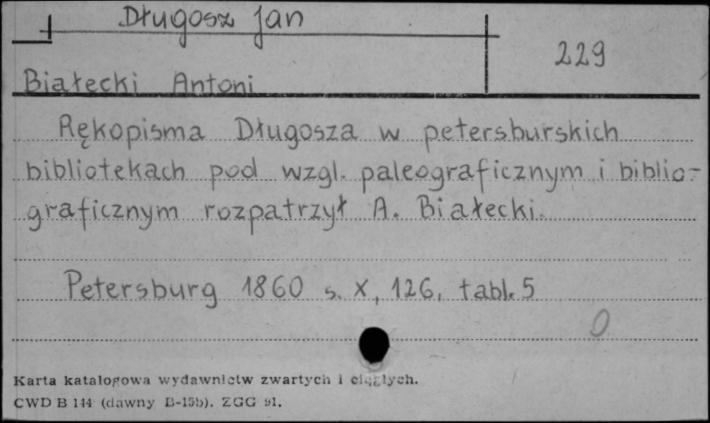 Długosz Jan
229
Białecki Antoni
Rękopisma Długosza w petersburskich
bibliotekach pod wzgl. paleograficznym i biblio-
graficznym rozpatrzył A. Białecki.
Petersburg 1860 s. X, 126, tabl. 5
0
Karta katalogowa wydawnictw zwartych i ciągłych.
CWD B 144 (dawny B-15b). ZGG 91.